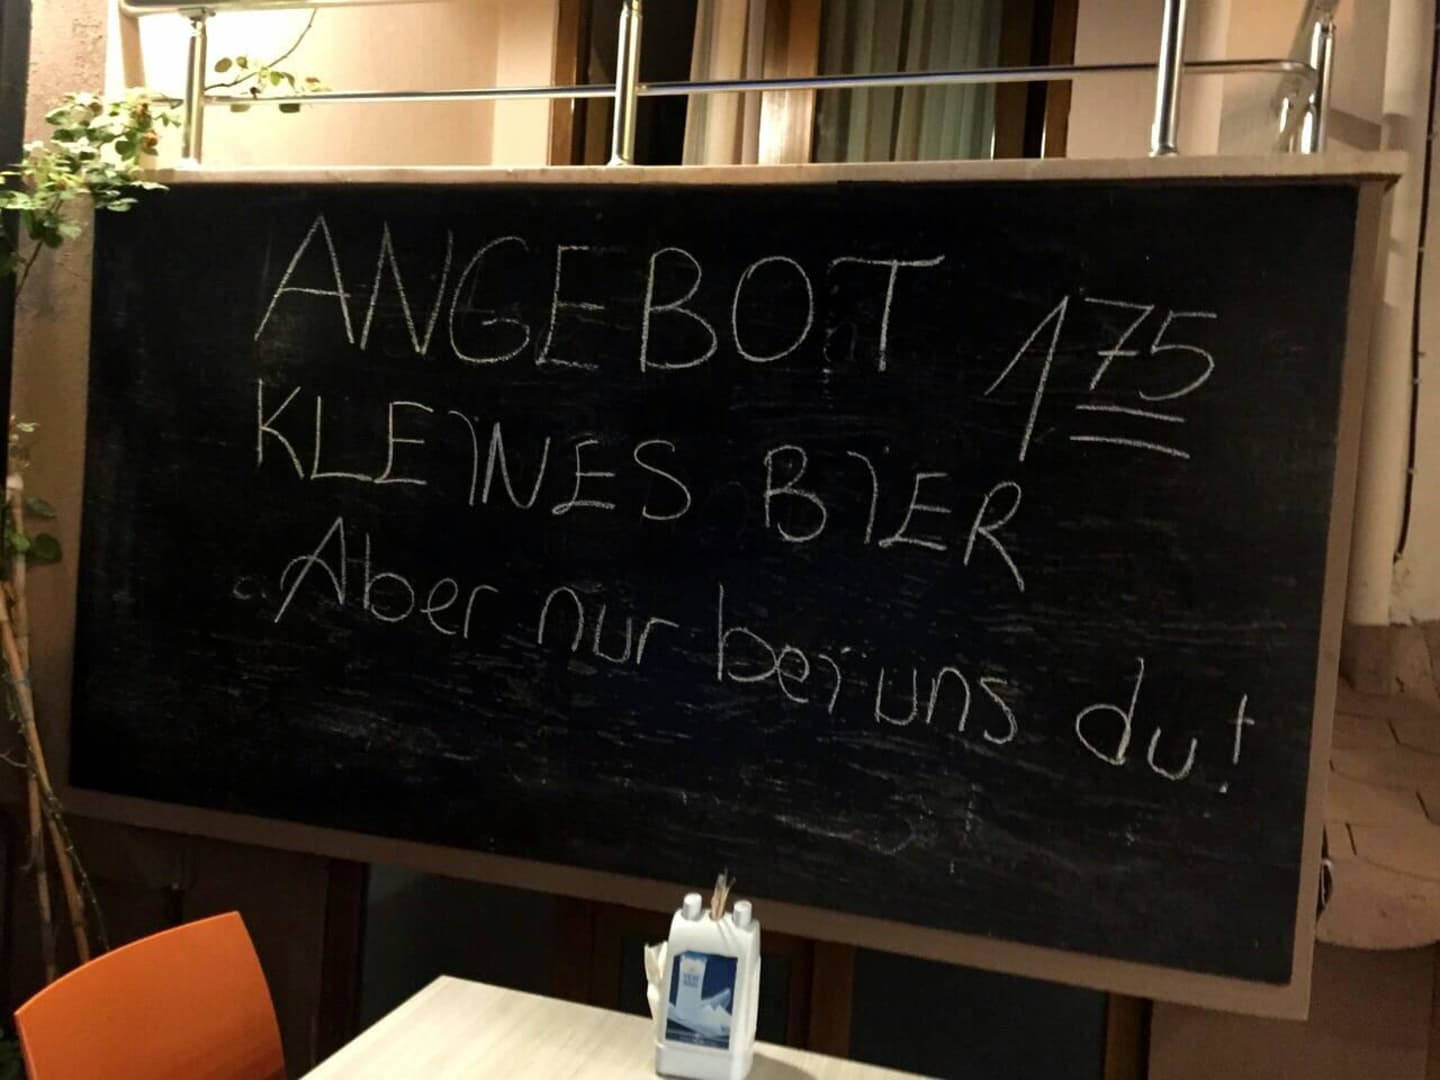 ANGEBOT 175
KLEINES BIER
Aber nur bei uns du!